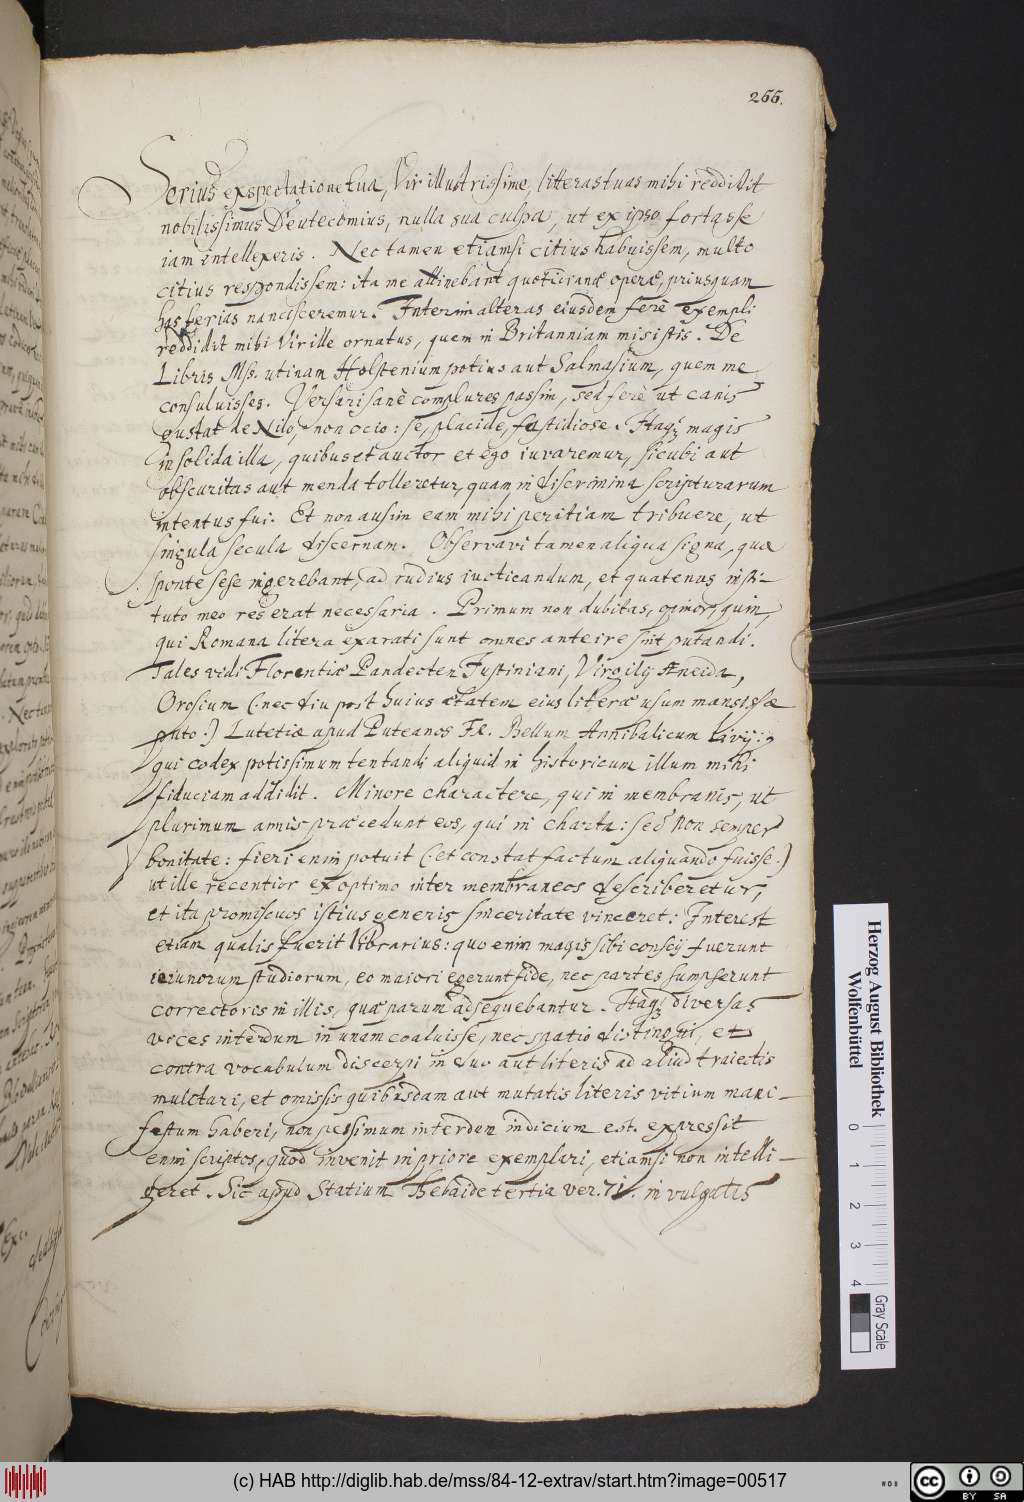 266.
Serius exspectatione tua, Vir illustrissime, litteras tuas mihi reddidit
nobilissimus Deutecomius, nulla sua culpa, ut ex ipso fortasse
iam intellexeris. Nec tamen etiamsi citius habuissem, multo
citius respondissem: ita me attinebant quotidianæ operæ, priusquam
has ferias nancisceremur. Interim alteras eiusdem ferè exempli
reddidit mihi Vir ille ornatus, quem in Britanniam misistis. De
Libris Mss. utinam Holstenium potius aut Salmasium, quem me
consuluisses. Versari sanè complures passim, sed ferè ut canis
gustat de Nilo, non ociose, placide, fastidiose. Itaq; magis
in solida illa, quibus et auctor et ego iuvaremur, sicubi aut
obscuritas aut menda tolleretur, quam in discrimina scripturarum
intentus fui. Et non ausim eam mihi peritiam tribuere, ut
singula secula discernam. Observavi tamen aliqua signa, quæ
sponte sese ingerebant, ad rudius iudicandum, et quatenus insti-
tuto meo res erat necessaria. Primum non dubitas, opinor, quin,
qui Romana litera exarati sunt omnes anteire sint putandi.
Tales vidi Florentiæ Pandecten Justiniani, Virgilij Æneida,
Orosium (nec diu post huius ætatem eius literæ usum mansisse
puto.) Lutetiæ apud Puteanos FF. Bellum Annibalicum Livij:
qui codex potissimum tentandi aliquid in historicum illum mihi
fiduciam addidit. Minore charactere, qui in membranis, ut
plurimum annis præcedunt eos, qui in charta: sed non semper
bonitate: fieri enim potuit (et constat factum aliquando fuisse)
ut ille recentior ex optimo inter membraneos describeretur,
et ita promiscuos istius generis sinceritate vinceret. Interest
etiam qualis fuerit librarius: quo enim magis sibi conscij fuerunt
ieiunorum studiorum, eo maiori egerunt fide, nec partes sumpserunt
correctoris in illis, quæ parum adsequebantur. Itaq; diversas
voces interdum in unam coaluisse, nec spatio distingui, et
contra vocabulum discerpi in duo aut literis ad aliud traiectis
mulctari, et omissis quibusdam aut mutatis literis vitium mani-
festum haberi, non pessimum interdum indicium est. expressit
enim scriptor, quod invenit in priore exemplari, etiamsi non intelli-
geret. Sic apud Statium Thebaide tertia ver. 71. in vulgatis
Herzog August Bibliothek
Wolfenbüttel
0 1 2 3 4
Gray Scale
(c) HAB http://diglib.hab.de/mss/84-12-extrav/start.htm?image=00517
cc BY SA